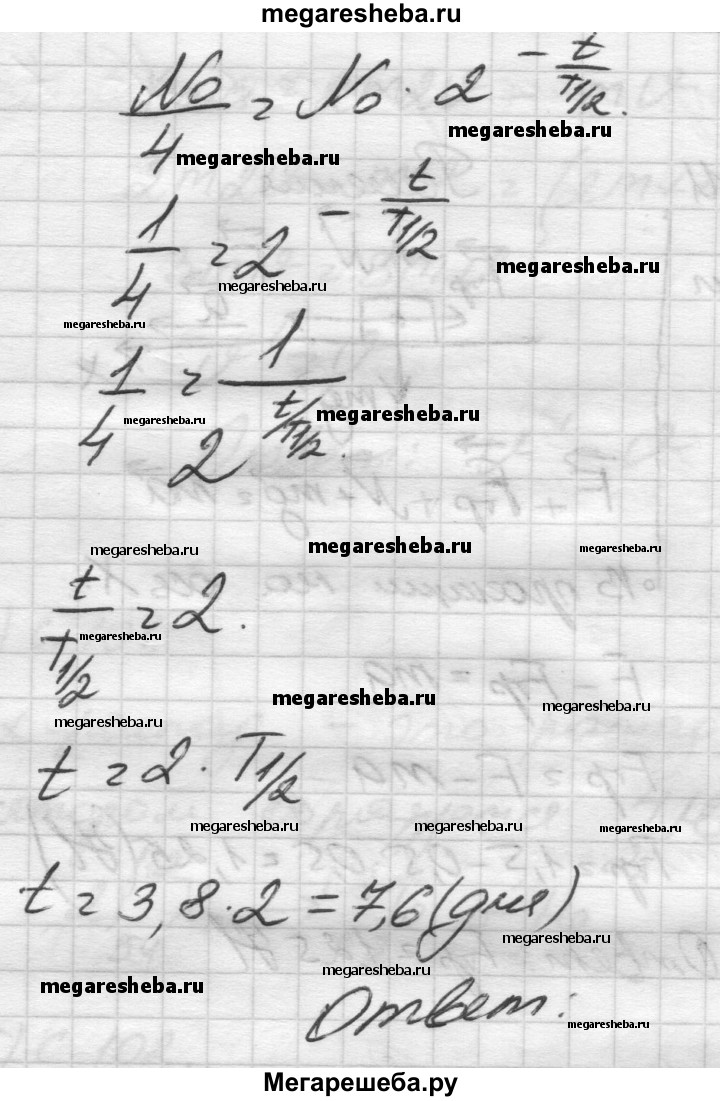 megaresheba.ru
N₀/4 = N₀ · 2^(-t/T1/2).
megaresheba.ru
megaresheba.ru
1/4 = 2^(-t/T1/2)
megaresheba.ru
megaresheba.ru
megaresheba.ru
1/4 = 1/2^(t/T1/2).
megaresheba.ru
megaresheba.ru
megaresheba.ru
megaresheba.ru
megaresheba.ru
t/T1/2 = 2.
megaresheba.ru
megaresheba.ru
megaresheba.ru
megaresheba.ru
t = 2 · T1/2
megaresheba.ru
megaresheba.ru
megaresheba.ru
t = 3,8 · 2 = 7,6 (дня)
megaresheba.ru
megaresheba.ru
megaresheba.ru
Ответ:
megaresheba.ru
Мегарешеба.ру